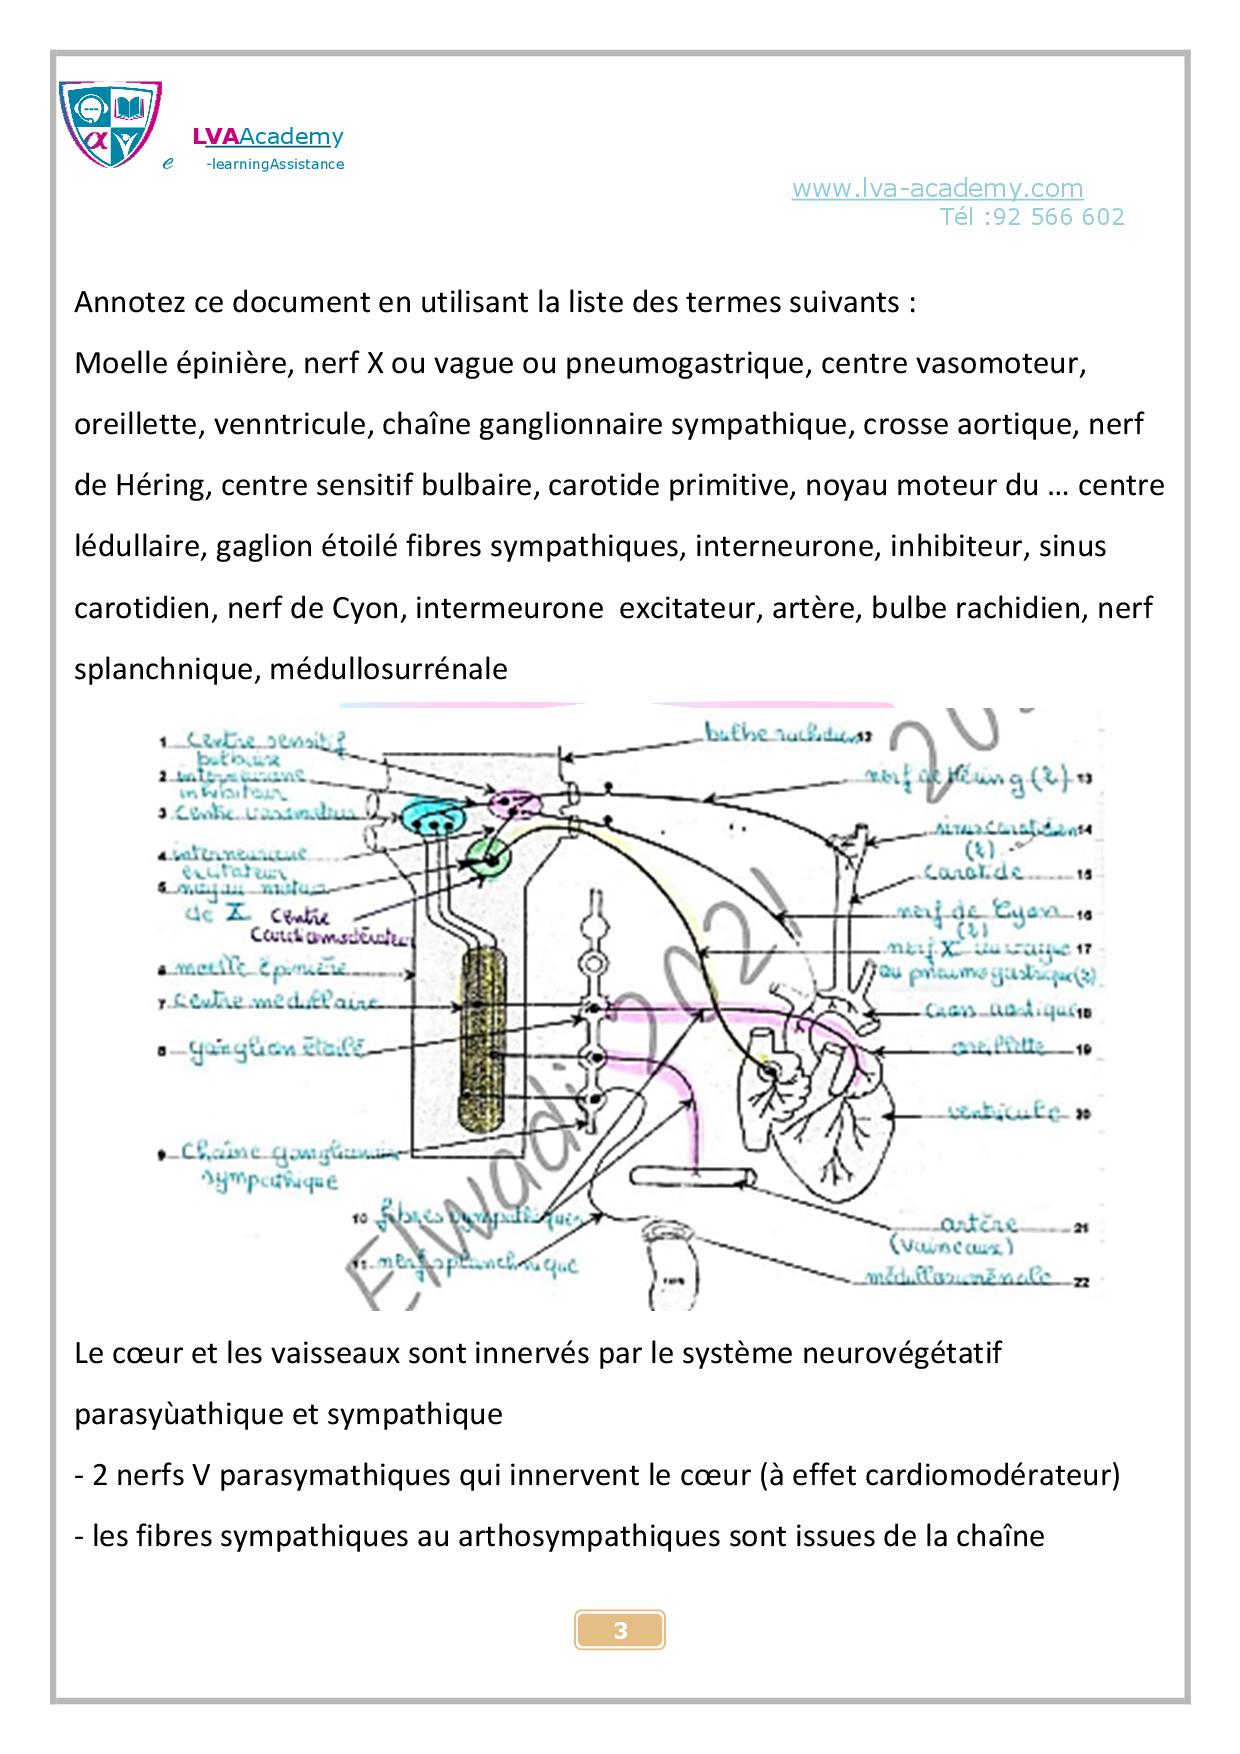 LVAAcademy
e -learningAssistance
www.lva-academy.com
Tél :92 566 602
Annotez ce document en utilisant la liste des termes suivants :
Moelle épinière, nerf X ou vague ou pneumogastrique, centre vasomoteur,
oreillette, venntricule, chaîne ganglionnaire sympathique, crosse aortique, nerf
de Héring, centre sensitif bulbaire, carotide primitive, noyau moteur du … centre
lédullaire, gaglion étoilé fibres sympathiques, interneurone, inhibiteur, sinus
carotidien, nerf de Cyon, intermeurone excitateur, artère, bulbe rachidien, nerf
splanchnique, médullosurrénale
1 Centre sensitif
bulbaire
2 interneurone
inhibiteur
3 Centre vasomoteur
4 interneurone
excitateur
5 noyau moteur
de X
Centre
Cardiomodérateur
6 moelle épinière
7 Centre médullaire
8 ganglion étoilé
9 Chaîne ganglionnaire
sympathique
10 fibres sympathiques
11 nerf splanchnique
bulbe rachidien 12
nerf de Héring (2) 13
sinus carotidien 14
(2)
carotide 15
nerf de Cyon 16
(2)
nerf X ou vague 17
ou pneumogastrique (2)
aortique 18
oreillette 19
ventricule 20
artère 21
(vaisseaux)
médullosurrénale 22
Elwadi 2021
Le cœur et les vaisseaux sont innervés par le système neurovégétatif
parasyùathique et sympathique
- 2 nerfs V parasymathiques qui innervent le cœur (à effet cardiomodérateur)
- les fibres sympathiques au arthosympathiques sont issues de la chaîne
3